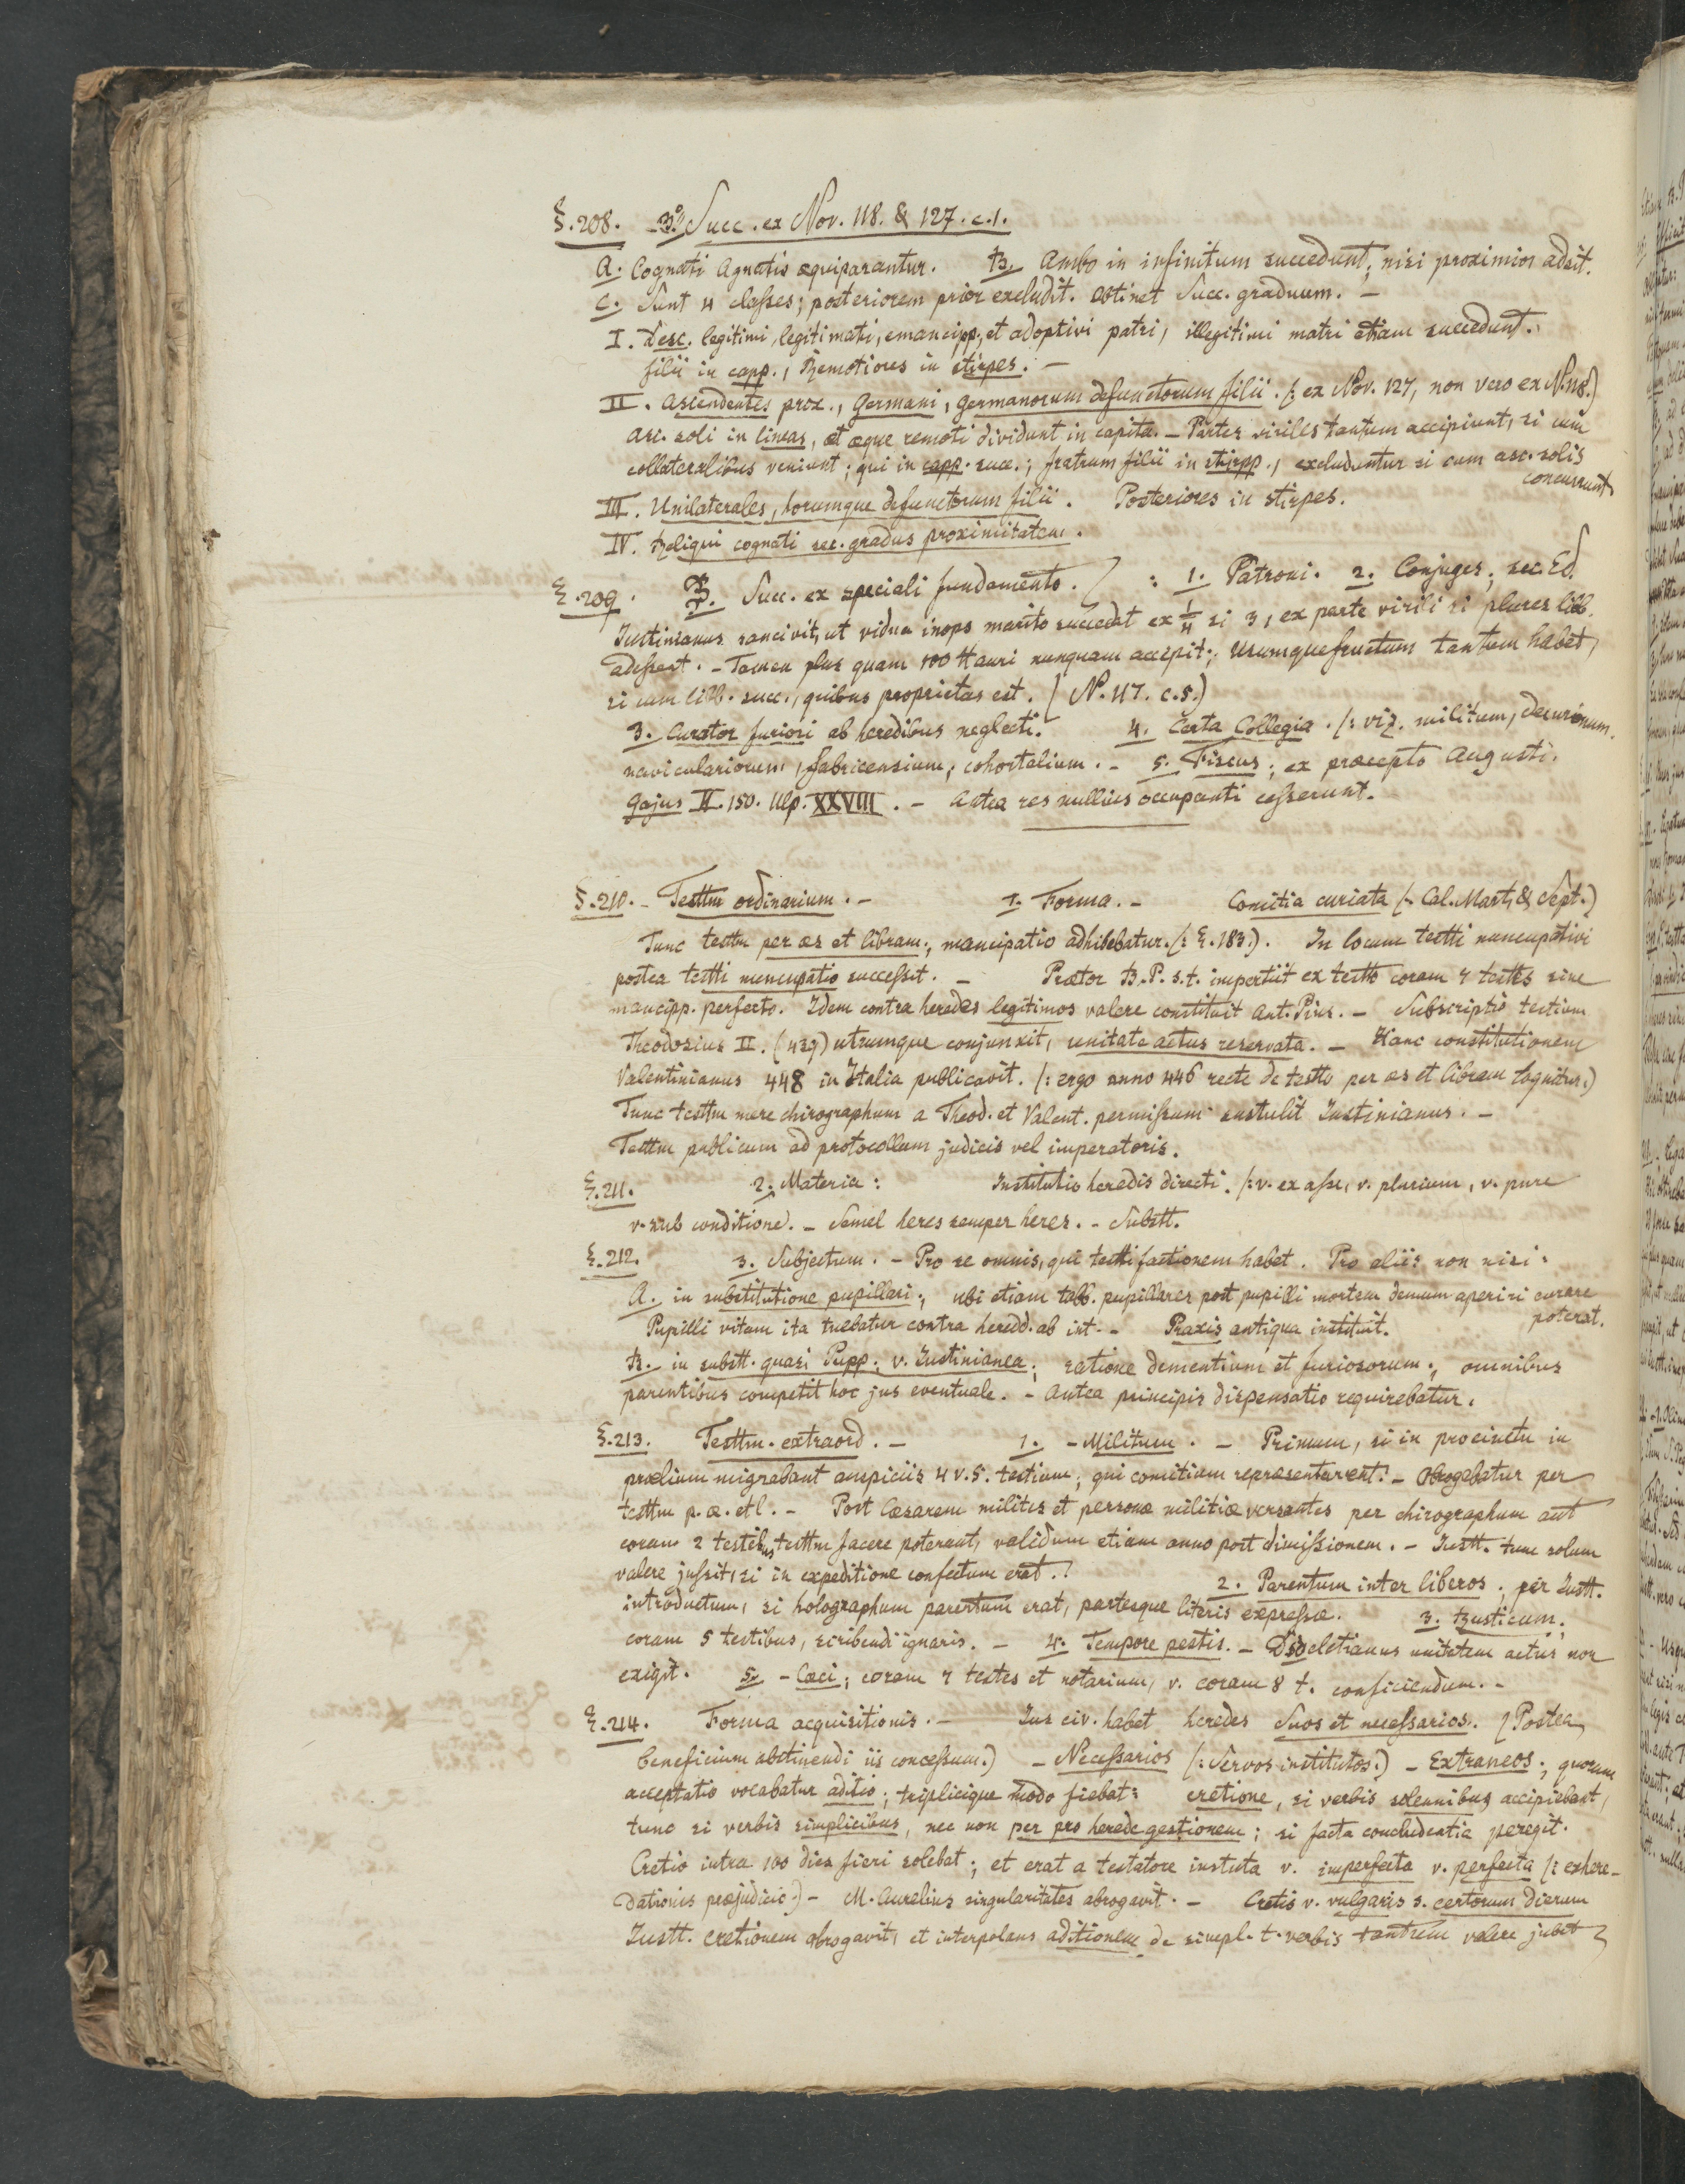 §.208. 3°/ Succ. ex Nov. 118. & 127. c.1.
A. Cognati Agnatis æquiparantur. B. Ambo in infinitum succedunt; nisi proximior adsit.
C. Sunt 4 classes; posteriorem prior excludit. Obtinet Succ. graduum. –
I. Desc. legitimi, legitimati, emancipp., et adoptivi patri, illegitimi matri etiam succedunt.
filii in capp., Remotiores in stirpes. –
II. Ascendentes prox., Germani, germanorum defunctorum filii. (: ex Nov. 127, non vero ex N. 118.)
Asc. soli in lineas, et æque remoti dividunt in capita. – Partes viriles tantum accipiunt, si cum
collateralibus veniunt; qui in capp. succ.; fratrum filii in stirpp., excluduntur si cum asc. solis
concurrunt
III. Unilaterales, horumque defunctorum filii. Posteriores in stirpes.
IV. Reliqui cognati sec. gradus proximitatem.
§.209. B. Succ. ex speciali fundamento. : 1. Patroni. 2. Conjuges; sec. Ed.
Justinianus sancivit, ut vidua inops marito succedat ex 1/4 si 3, ex parte virili si plures lib.
adessent. – Tamen plus quam 100 ℔ auri nunquam accepit; usumquefructum tantum habet,
si cum lib. succ., quibus proprietas est. (N. 117. c.5.)
3. Curator furiosi ab heredibus neglecti. 4. Certa Collegia. (: viz. militum, decurionum,
naviculariorum, fabricensium, cohortalium. – 5. Fiscus; ex præcepto Augusti.
Gajus II. 150. Ulp. XXVIII. – Antea res nullius occupanti cesserunt.
§.210. – Testtm ordinarium. – 1. Forma. – Comitia curiata (: Cal. Mart. & Sept.)
Tunc testtm per æs et libram; mancipatio adhibebatur. (: §.183.). In locum testti nuncupativi
postea testti nuncupatio successit. – Prætor B.P. s.t. impertiit ex testto coram 7 testtes sine
mancipp. perfecto. Idem contra heredes legitimos valere constituit Ant. Pius. – Subscriptio testium
Theodosius II. (439) utrumque conjunxit, unitate actus reservata. – Hanc constitutionem
Valentinianus 448 in Italia publicavit. (: ergo anno 446 recte de testto per æs et libram loquitur.)
Tunc testtm mere chirographum a Theod. et Valent. permissum sustulit Justinianus. –
Testtm publicum ad protocollum judicis vel imperatoris.
§.211. 2. Materia: Institutio heredis directi. (: v. ex asse, v. plurium, v. pure
v. sub conditione. – Semel heres semper heres. – Substt.
§.212. 3. Subjectum. – Pro se omnis, qui testti factionem habet. Pro aliis non nisi:
A. in substitutione pupillari; ubi etiam tabb. pupillares post pupilli mortem demum aperiri curare
poterat.
Pupilli vitam ita tuebatur contra heredd. ab int. – Praxis antiqua instituit.
B. in substt. quasi Pupp. v. Justinianea; ratione dementium et furiosorum; omnibus
parentibus competit hoc jus eventuale. – Antea principis dispensatio requirebatur.
§.213. Testtm. extraord. – 1. – Militum. – Primum, si in procinctu in
prælium migrabant auspiciis 4 v. 5. testium; qui comitiam repræsentarent. – Obrogabatur per
testtm p. æ. et l. – Post Cæsarem milites et personæ militiæ versantes per chirographum aut
coram 2 testibus testtm facere poterant, validum etiam anno post dimissionem. – Justt. tunc solum
valere jussit, si in expeditione confectum erat. 2. Parentum inter liberos. per Justt.
introductum, si holographum parentum erat, partesque literis expressæ. 3. Rusticum;
coram 5 testibus, scribendi ignaris. – 4. Tempore pestis. – Diocletianus unitatem actus non
exigit. 5. – Cæci; coram 7 testes et notarium, v. coram 8 t. conficiendum. –
§.214. Forma acquisitionis. – Jus civ. habet heredes Suos et necessarios. (Postea
beneficium abstinendi iis concessum.) – Necessarios (: Servos institutos.) – Extraneos; quorum
acceptatio vocabatur aditio; triplicique modo fiebat: cretione, si verbis solennibus accipiebant,
tunc si verbis simplicibus, nec non per pro herede gestionem; si facta concludentia peregit.
Cretio intra 100 dies fieri solebat; et erat a testatore instituta v. imperfecta v. perfecta (: exhere-
dationis præjudicio.) – M. Aurelius singularitates abrogavit. – Cretio v. vulgaris s. certorum dierum
Justt. cretionem abrogavit, et interpolans aditionem de simpl. t. verbis tantum valere jubet